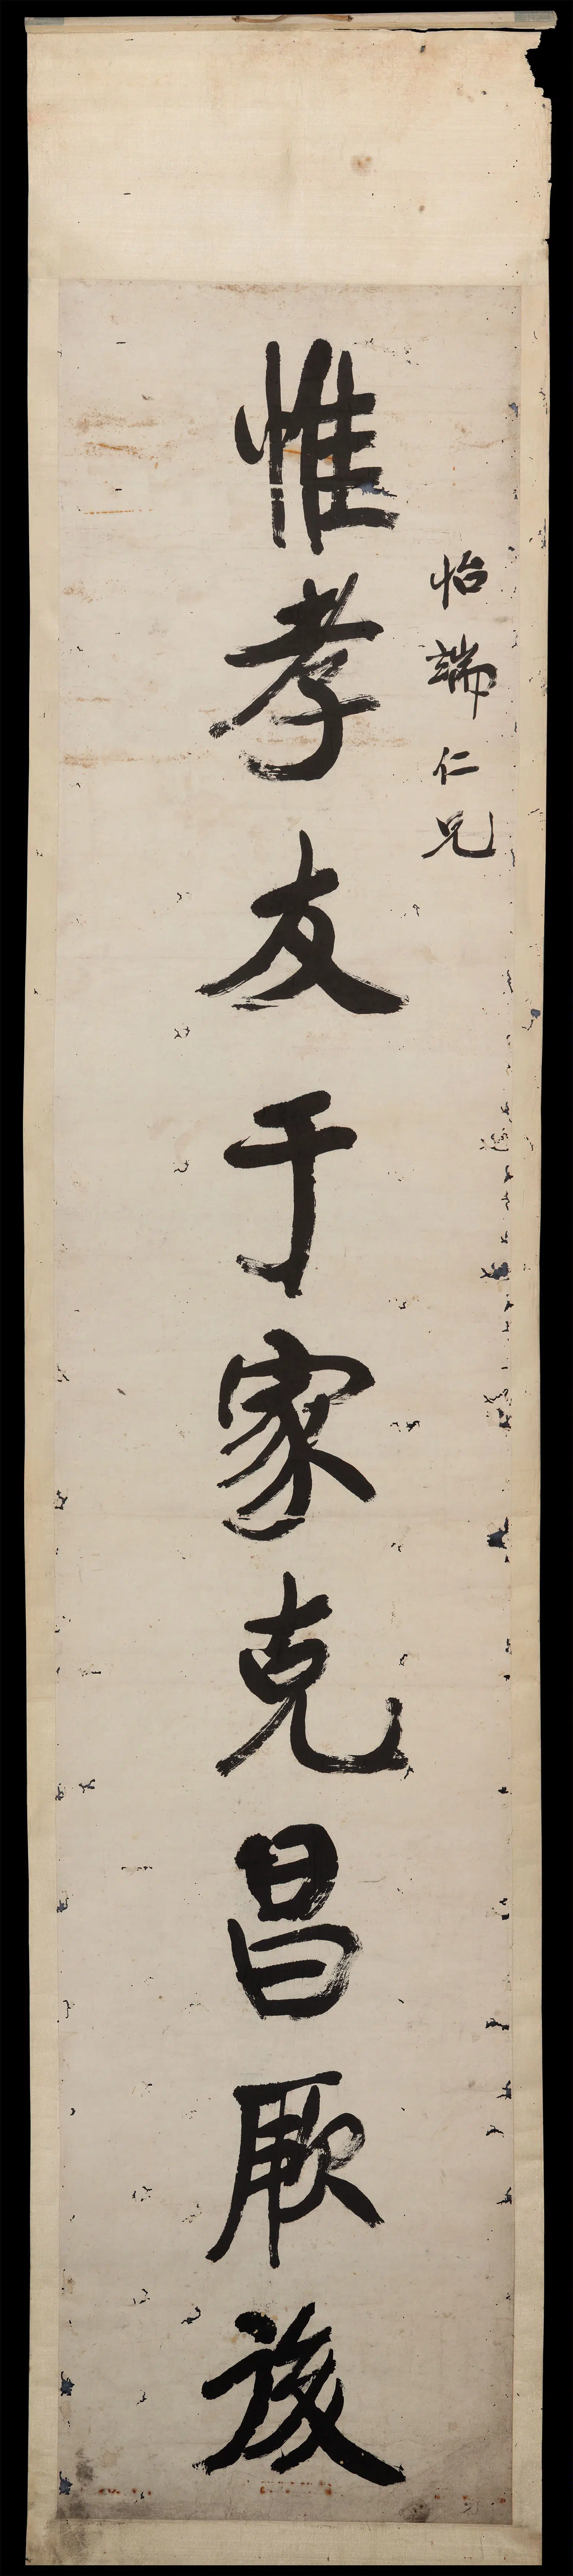 怡端仁兄
惟孝友于家克昌厥後